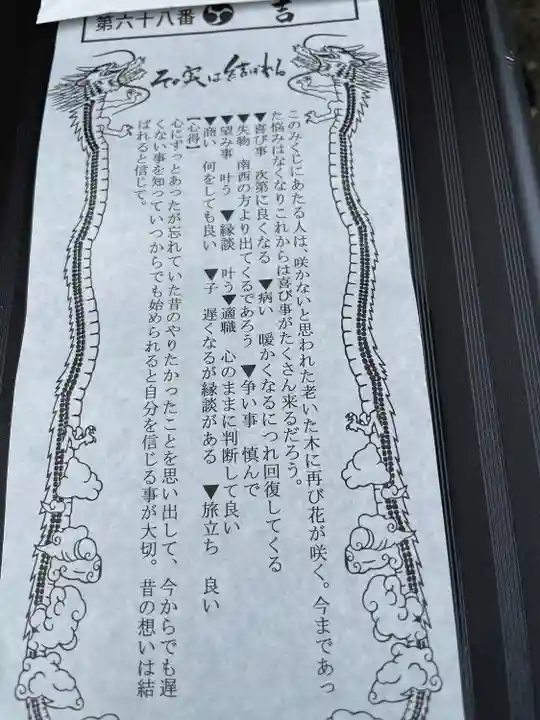 第六十八番
吉
その実は結ばれる
このみくじにあたる人は、咲かないと思われた老いた木に再び花が咲く。今まであっ
た悩みはなくなりこれからは喜び事がたくさん来るだろう。
▼喜び事 次第に良くなる ▼病い 暖かくなるにつれ回復してくる
▼失物 南西の方より出てくるであろう ▼争い事 慎んで
▼望み事 叶う ▼縁談 叶う▼適職 心のままに判断して良い
▼商い 何をしても良い ▼子 遅くなるが縁談がある ▼旅立ち 良い
【心得】
心にずっとあったが忘れていた昔のやりたかったことを思い出して、今からでも遅
くない事を知っていつからでも始められると自分を信じる事が大切。昔の想いは結
ばれると信じて。